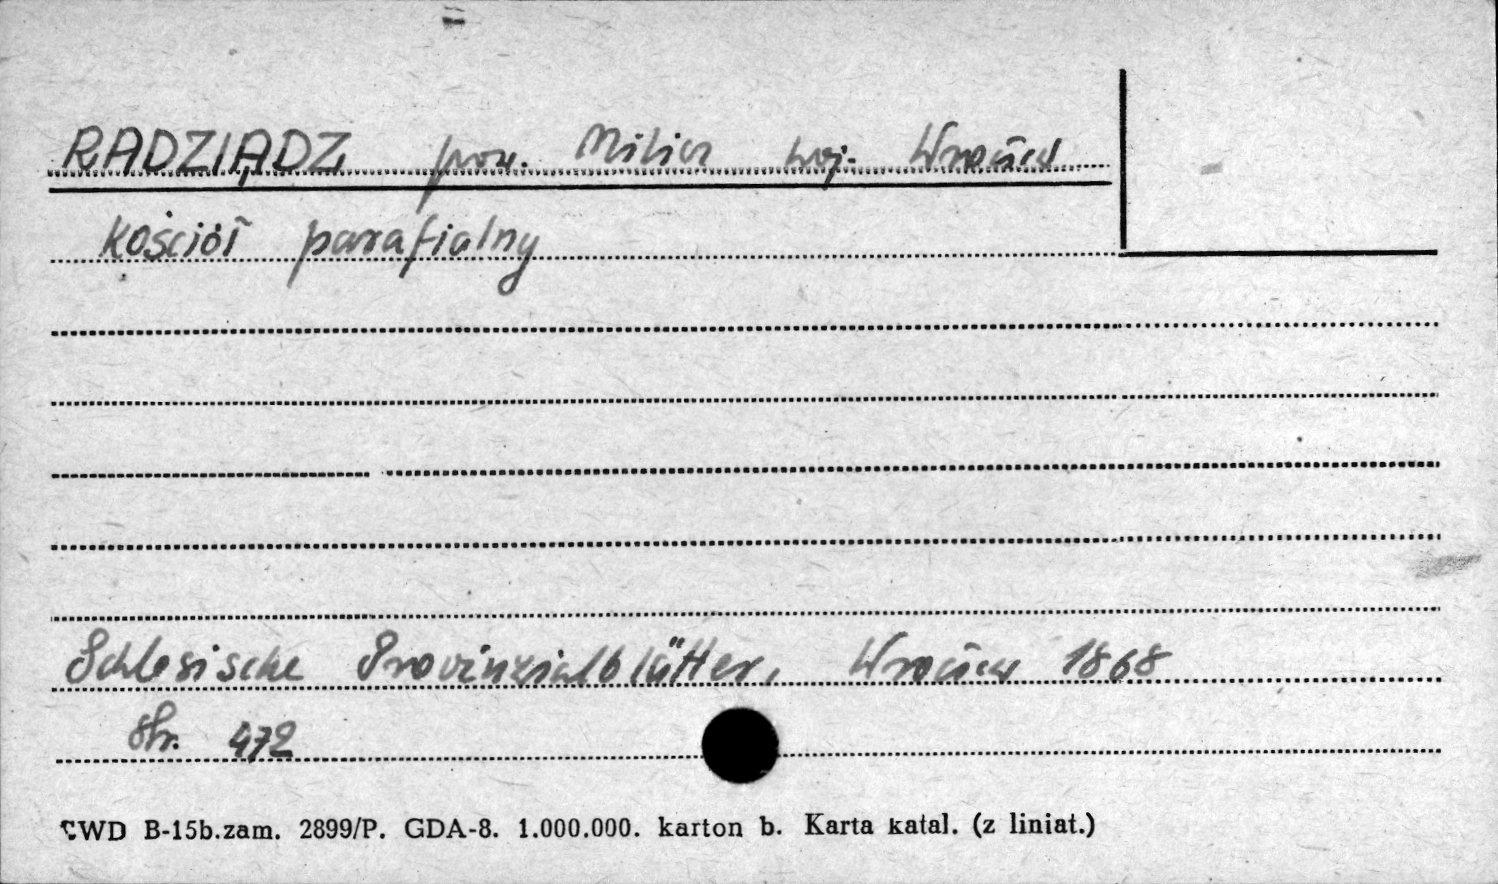 RADZIĄDZ pow. Milicz woj. Wrocław
kościół parafialny
Schlesische Provinzialblätter, Wrocław 1868
Str. 472
CWD B-15b.zam. 2899/P. GDA-8. 1.000.000. karton b. Karta katal. (z liniat.)